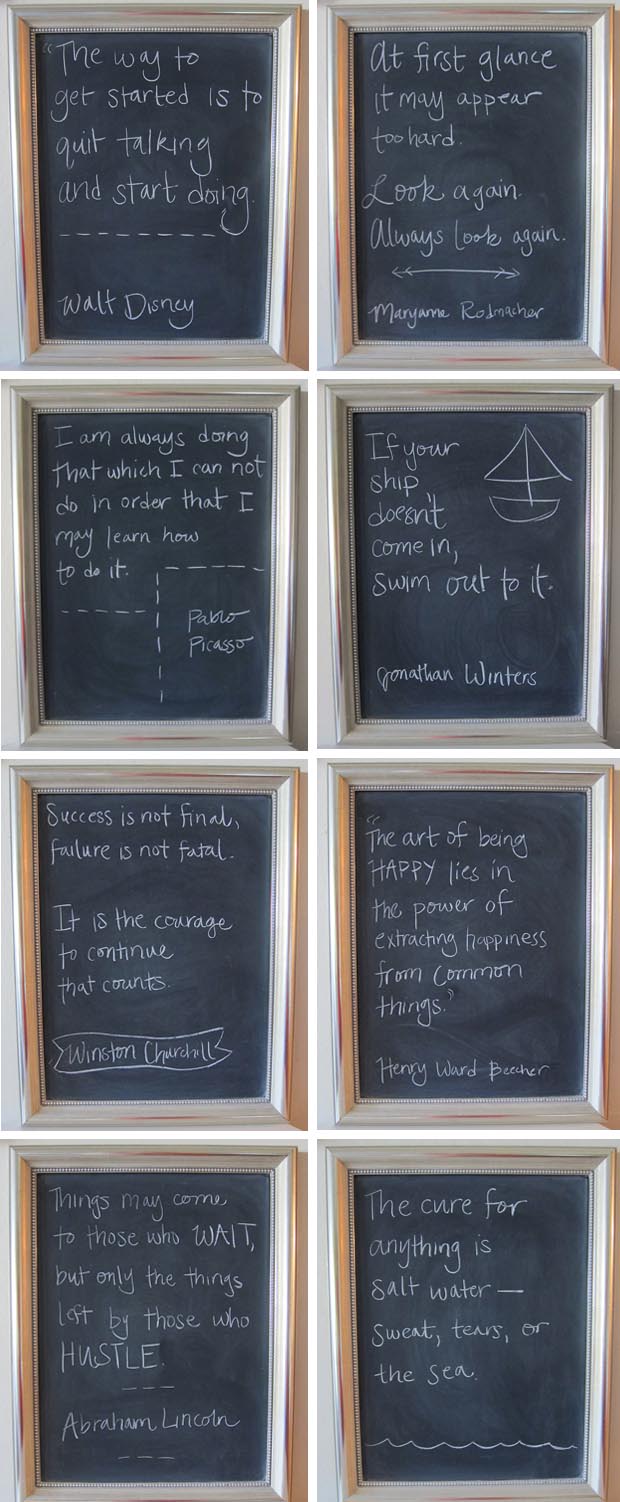 "The way to
get started is to
quit talking
and start doing.
Walt Disney
At first glance
it may appear
too hard.
Look again.
Always look again.
Maryanne Rodmacher
I am always doing
that which I can not
do in order that I
may learn how
to do it.
Pablo
Picasso
If your
ship
doesn't
come in,
swim out to it.
Jonathan Winters
Success is not final,
failure is not fatal.
It is the courage
to continue
that counts.
Winston Churchill
"The art of being
HAPPY lies in
the power of
extracting happiness
from common
things."
Henry Ward Beecher
Things may come
to those who WAIT,
but only the things
left by those who
HUSTLE.
Abraham Lincoln
The cure for
anything is
Salt water —
Sweat, tears, or
the sea.